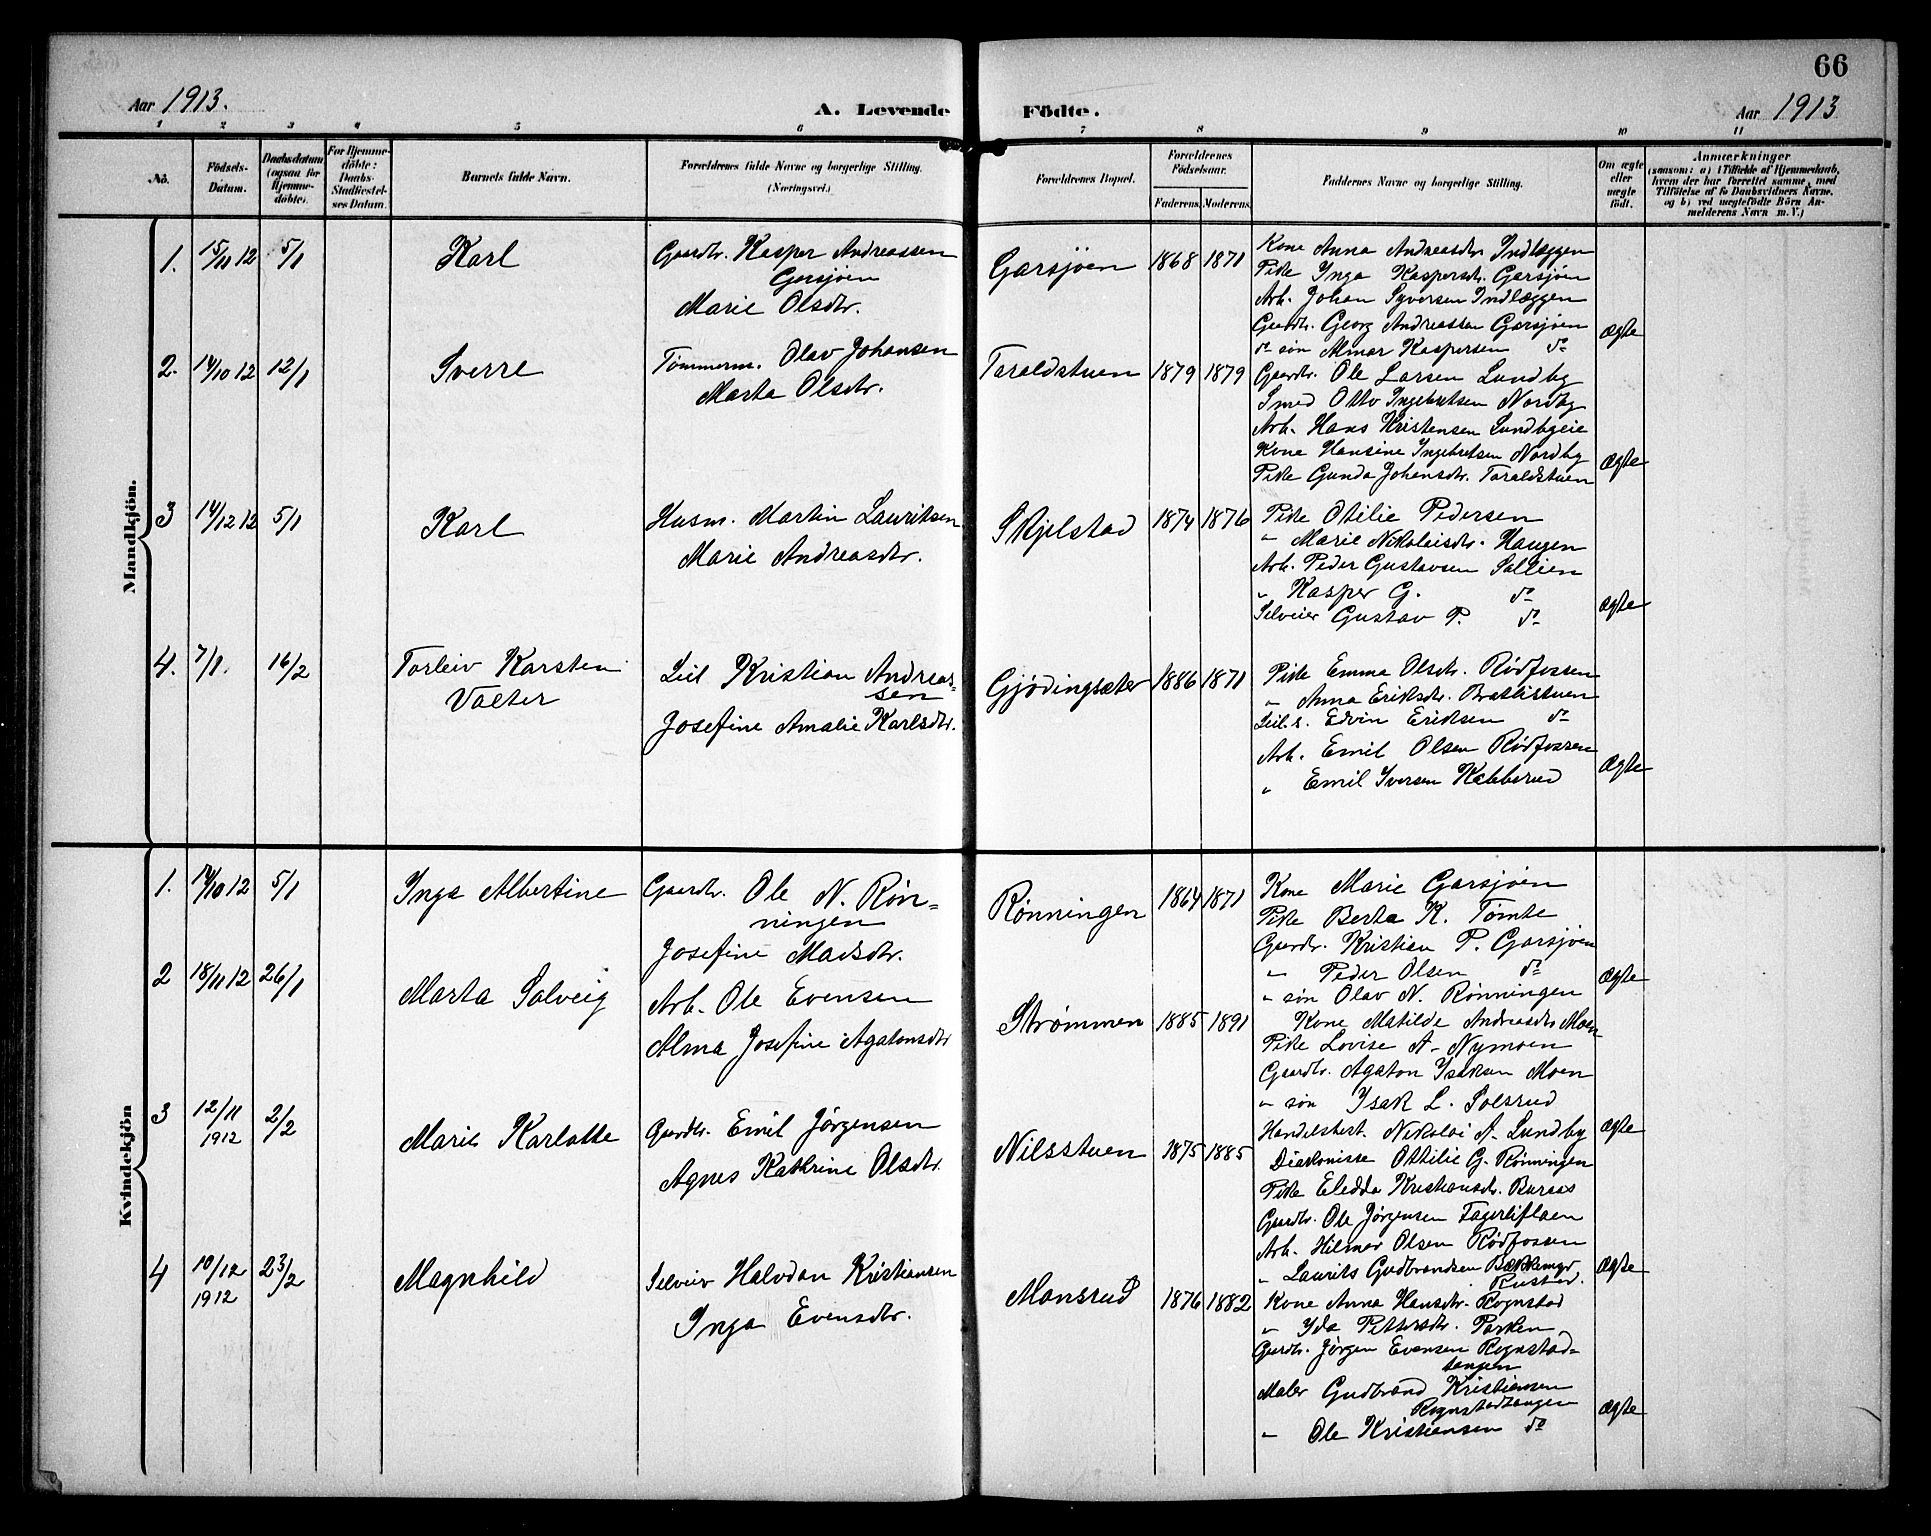 66
Aar 1913.
A. Levende Födte.
Aar 1913
1 2 3 4 5 6 7 8 9 10 11
No.
Födsels-
Datum.
Daabsdatum
(ogsaa for
Hjemme-
döbte).
For Hjemme-
döbte:
Daabs-
Stadfæstel-
ses Datum.
Barnets fulde Navn.
Forældrenes fulde Navne og borgerlige Stilling.
(Næringsvei.)
Forældrenes Bopæl.
Forældrenes
Födselsaar.
Faderens. Moderens.
Faddernes Navne og borgerlige Stilling.
Om ægte
eller
uægte
födt.
Anmærkninger
(saasom: a) i Tilfælde af Hjemmedaab,
hvem der har forrettet samme, med
Tilföielse af to Daabsvidners Navne,
og b) ved uægtefödte Börn An-
melderens Navn m. V.)
Mandkjön.
1. 15/11 12 5/1 Karl
Gaardbr. Kasper Andreassen
Garsjøen
Marie Olsdtr.
Garsjøen 1868 1871
Kone Anna Andreasdtr Indlæggen
Pike Inga Kaspersdtr. Garsjøen
Arb. Johan Syversen Indlæggen
Gaardbr. Georg Andreassen Garsjøen
do søn Almar Kaspersen do
ægte
2. 14/10 12 12/1 Sverre
Tømmerm. Olav Johansen
Marta Olsdtr.
Taraldstuen 1879 1879
Gaardbr. Ole Larsen Lundby
Smed Otto Ingebretsen Nordby
Arb. Hans Kristensen Lundbyeie
Kone Hansine Ingebretsen Nordby
Pike Gunda Johansdtr. Taraldstuen
ægte
3 14/12 12 5/1 Karl
Husm. Martin Lauritsen
Marie Andreasdtr.
Skjelstad 1874 1876
Pike Otilie Pedersen
" Marie Nikolaisdtr. Haugen
Arb. Peder Gustavsen Sollien
" Kasper G. do
Selveier Gustav P. do
ægte
4. 7/1. 16/2 Torleiv Karsten
Valter
Leil Kristian Andreas-
sen
Josefine Amalie Karlsdtr.
Gjødingsæter 1886 1871
Pike Emma Olsdtr. Rødfossen
" Anna Eriksdtr. Bratlistuen
Leil. s. Edvin Eriksen do
Arb. Emil Olsen Rødfossen
" Emil Iversen Kabberud
ægte
Kvindekjön
1. 14/10 12 5/1 Inga Albertine
Gaardbr. Ole N. Røn-
ningen
Josefine Madsdtr.
Rønningen 1864 1871
Kone Marie Garsjøen
Pike Berta K. Tømte
Gaardbr. Kristian P. Garsjøen
" Peder Olsen do
" søn Olav N. Rønningen
ægte
2 18/11 12 26/1 Marta Solveig
Arb. Ole Evensen
Alma Josefine Agatonsdtr
Strømmen 1885 1891
Kone Matilde Andreasdtr Moen
Pike Lovise A- Nymoen
Gaardbr. Agaton Isaksen Moen
" søn Isak L. Solsrud
Handelsbest. Nikolai A. Lundby
ægte
3 12/11 1912 2/2 Marie Karlotte
Gaardbr. Emil Jørgensen
Agnes Kathrine Olsdtr.
Nilsstuen 1875 1885
Diakonisse Ottilie G. Rønningen
Pike Eledda Kristiansdtr. Buraas
Gaardbr. Ole Jørgensen Fagerliflaen
Arb. Hilmar Olsen Rødfossen
" Laurits Gudbrandsen Bækkemyr
Rustad.
ægte
4 10/12 1912 23/2 Magnhild
Selveier Halvdan Kristiansen
Inga Evensdtr.
Mansrud 1876 1882
Kone Anna Hansdtr. Rognstad
" Ida Pettersdtr. Parken
Gaardbr. Jørgen Evensen Rognstad-
tangen
Maler Gudbrand Kristiansen
Rognstadtangen
" Ole Kristiansen do
ægte